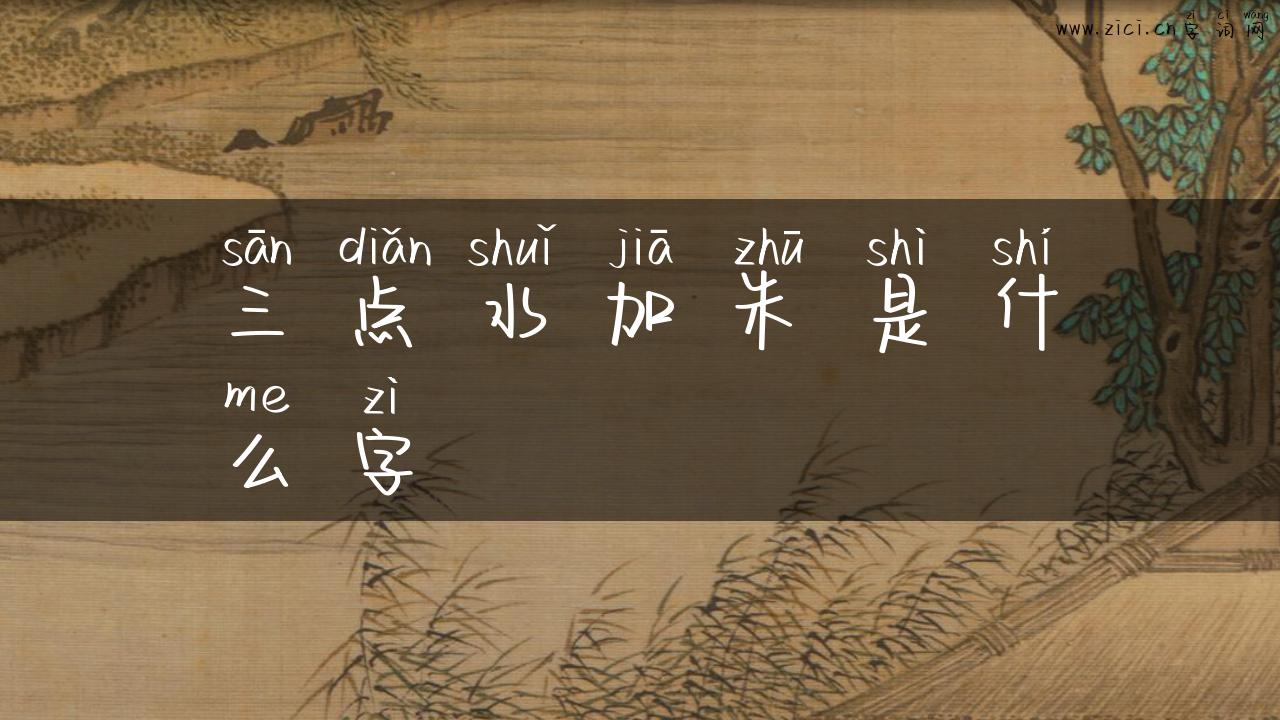 zì cí wǎng
www.zici.cn字词网
sān diǎn shuǐ jiā zhū shì shí
三点水加朱是什
me zì
么字